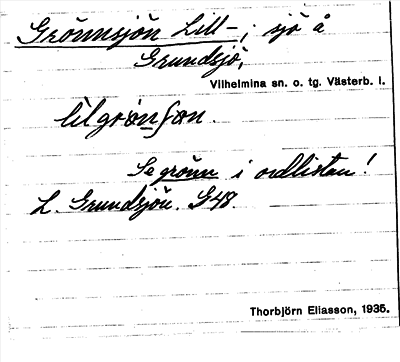 Grönnsjön Lill-; sjö å
Grundsjö,
Vilhelmina sn. o. tg. Västerb. l.
lilgrønʃøn.
Se grönn i ordlistan!
L. Grundsjön. G48.
Thorbjörn Eliasson, 1935.